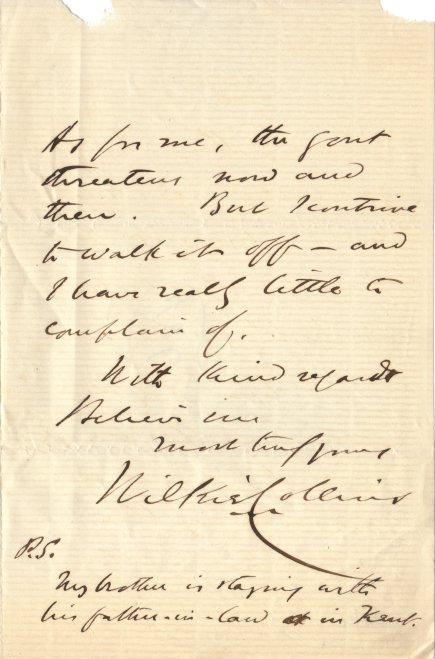 As for me, the gout
threatens now and
then. But I contrive
to walk it off – and
I have really little to
complain of.
With kind regards
Believe me
most truly yours
Wilkie Collins
P.S.
My brother is staying with
his father-in-law in Kent.